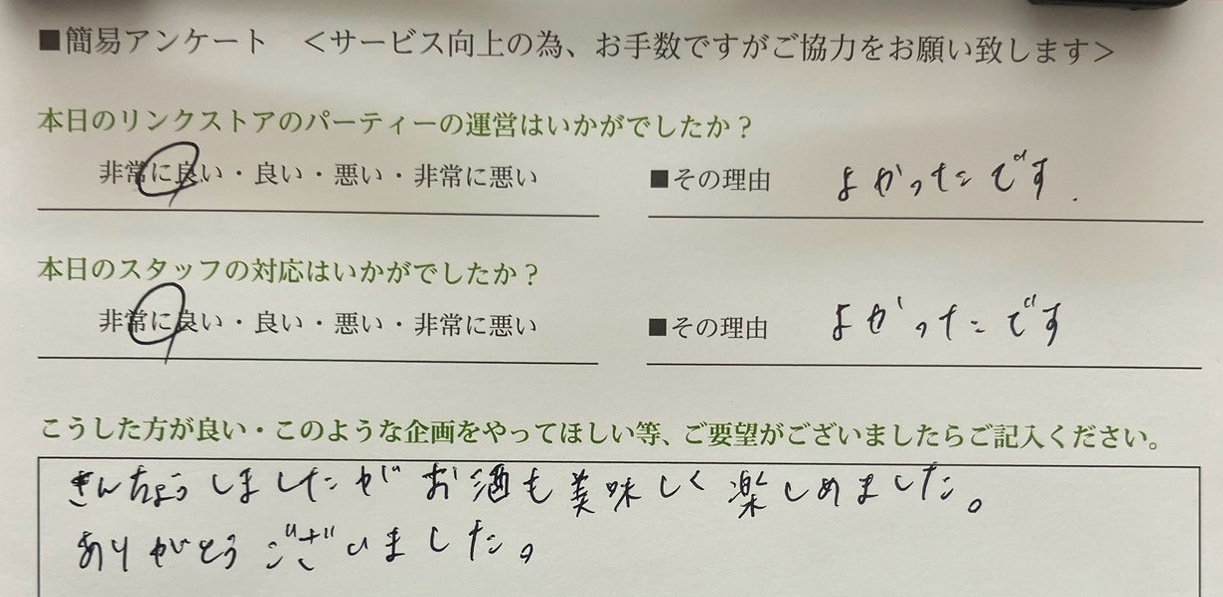 ■簡易アンケート　＜サービス向上の為、お手数ですがご協力をお願い致します＞
本日のリンクストアのパーティーの運営はいかがでしたか？
非常に良い・良い・悪い・非常に悪い　■その理由　よかったです.
本日のスタッフの対応はいかがでしたか？
非常に良い・良い・悪い・非常に悪い　■その理由　よかったです
こうした方が良い・このような企画をやってほしい等、ご要望がございましたらご記入ください。
きんちょうしましたが お酒も美味しく楽しめました。
ありがとうございました。